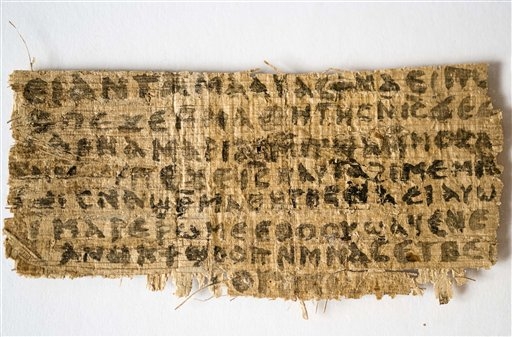 ⲉⲓ ⲁⲛ ⲧⲁⲙⲁⲁⲩ ⲁⲥϯ ⲛⲁⲉⲓ ⲡ
ⲡⲉϫⲉ ⲙⲙⲁⲑⲏⲧⲏⲥ ⲛⲓⲥ ϫⲉ ⲥ
ⲁⲣⲛⲁ ⲙⲁⲣⲓⲁⲙ
ⲡⲉϫⲉ ⲓⲥ ⲛⲁⲩ ⲧⲁϩⲓⲙⲉ ⲙⲛ
ⲙⲁⲑⲏⲧⲏⲥ ⲛⲁⲉⲓ ⲁⲩⲱ
ⲓ ⲙⲁⲣⲉⲣⲱⲙⲉ ⲉⲑⲟⲟⲩ ϣⲁϥⲉ ⲛⲉ
ⲁⲛⲟⲕ ϯϣⲟⲟⲡ ⲛⲙⲙⲁⲥ ⲉⲧⲃⲉ